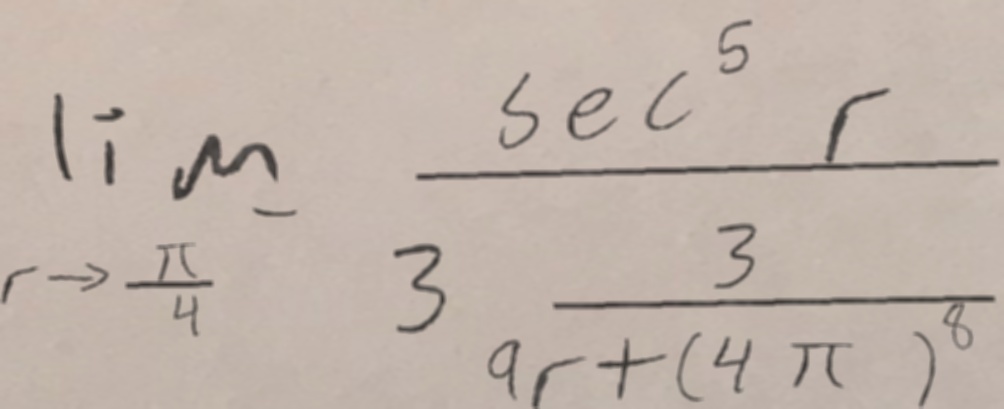 \lim_{r \to \frac{\pi}{4}} \frac{\sec^{5} r}{3 \frac{3}{9r + (4\pi)^{8}}}